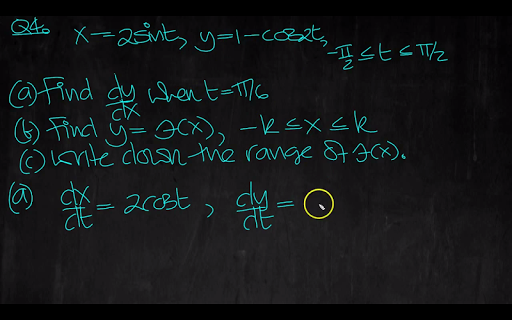 Q4.
x = 2sint, y = 1 - cos2t, -π/2 ≤ t ≤ π/2
(a) Find dy/dx when t = π/6
(b) Find y = f(x), -k ≤ x ≤ k
(c) Write down the range of f(x).
(a) dx/dt = 2cost, dy/dt =